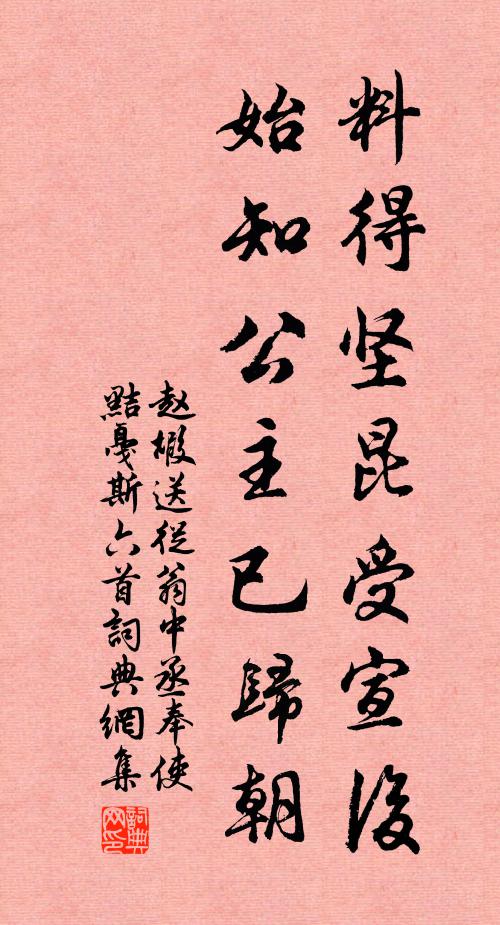 料得坚昆受宣後
始知公主已歸朝
赵嘏送從翁中丞奉使
黠戛斯六首詞典網集
詞典网印